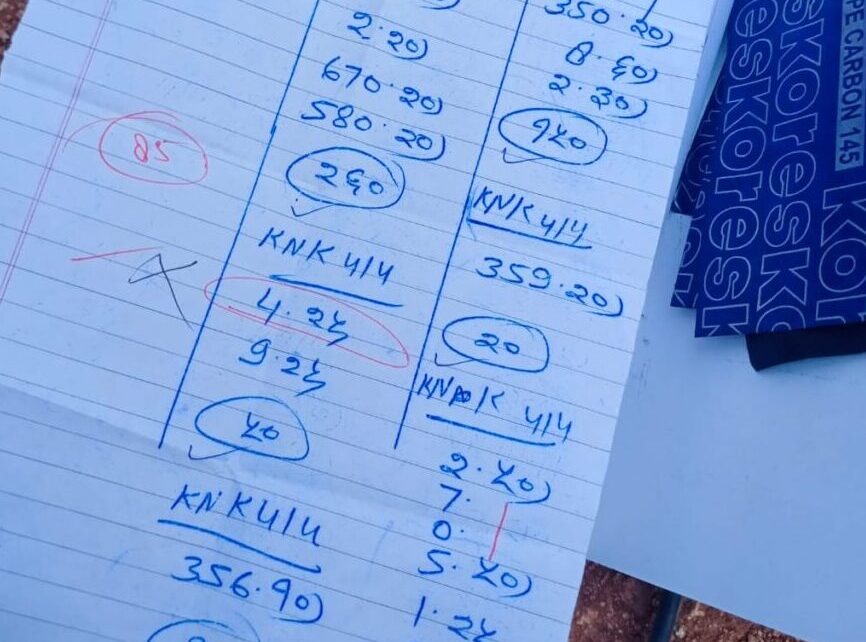 2·20)
670·20)
580·20)
260
KNK 4/4
4·25
9·25
50
KNK 4/4
356·90)
350·20)
8·60)
2·30)
950
KNK 4/4
359·20)
20
KNK 4/4
2·50)
7·
0·
5·50)
1·25
85
PE CARBON 145
koresk
eskores
skoresk
kor